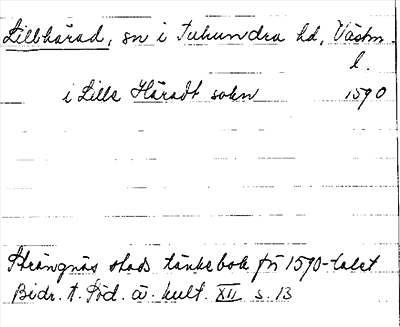 Lillhärad, sn i Tuhundra hd, Västm.
l.
i Lilla Häradt sokn 1590
Strängnäs stads tänkebok fr 1590-talet
Bidr. t. Söd. ä. kult. XII s. 13